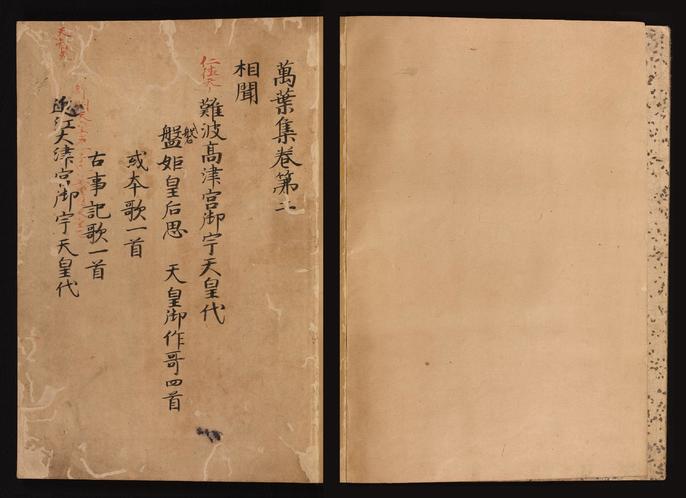 萬葉集巻第二
相聞
難波髙津宮御宇天皇代
盤姫皇后思 天皇御作哥四首
或本歌一首
古事記歌一首
近江大津宮御宇天皇代